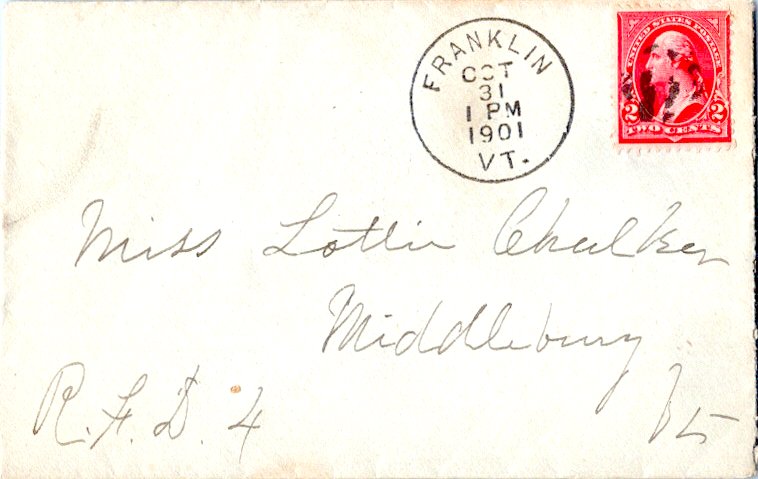 FRANKLIN
OCT
31
1 PM
1901
VT.
UNITED STATES POSTAGE
2 2
TWO CENTS
Miss Lottie Chalker
Middlebury
R.F.D. 4 Vt